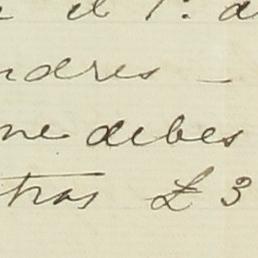 el 1º. d
ndres —
me debes
tras £3